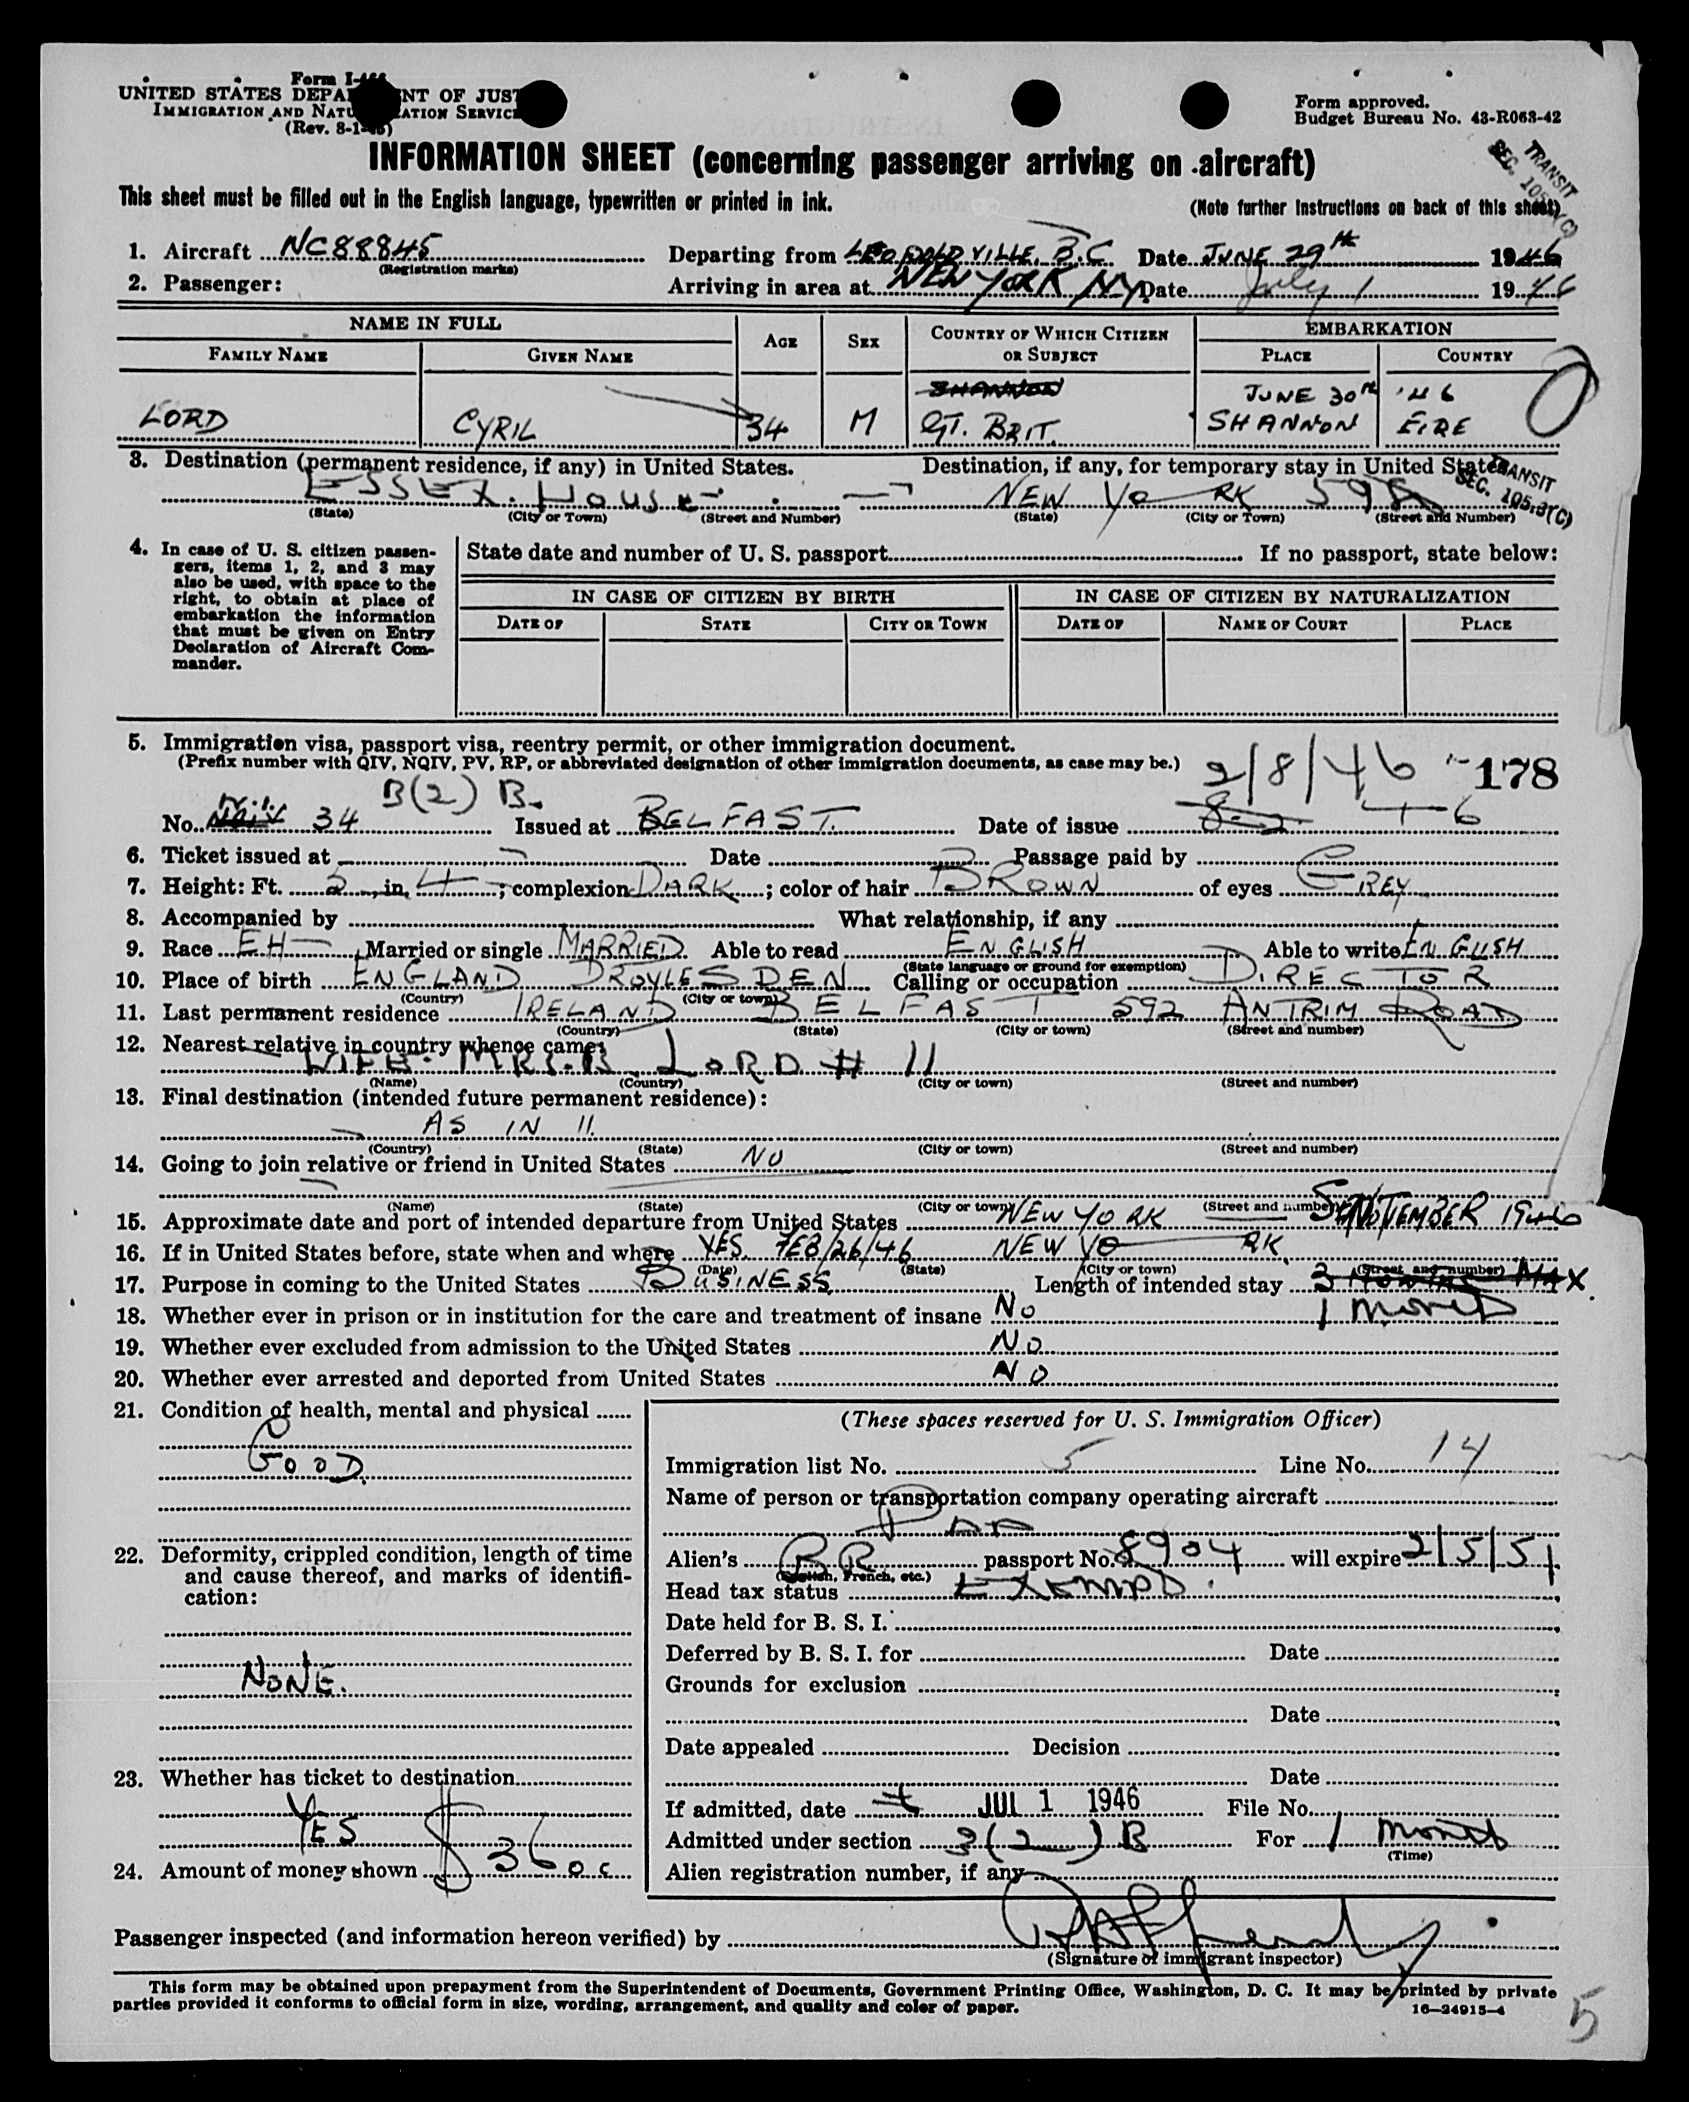 Form I-466
UNITED STATES DEPARTMENT OF JUSTICE
IMMIGRATION AND NATURALIZATION SERVICE
(Rev. 8-1-45)
Form approved.
Budget Bureau No. 43-R063-42
INFORMATION SHEET (concerning passenger arriving on aircraft)
TRANSIT
SEC. 105.3(C)
This sheet must be filled out in the English language, typewritten or printed in ink.
(Note further instructions on back of this sheet)
1. Aircraft NC88845 Departing from LEOPOLDVILLE, B.C Date JUNE 29th 1946
(Registration marks)
2. Passenger: Arriving in area at NEW YORK NY Date July 1 1946
NAME IN FULL AGE SEX COUNTRY OF WHICH CITIZEN OR SUBJECT EMBARKATION
FAMILY NAME GIVEN NAME PLACE COUNTRY
SHANNON JUNE 30th '46
LORD CYRIL 34 M GT. BRIT. SHANNON EIRE
3. Destination (permanent residence, if any) in United States. Destination, if any, for temporary stay in United States
TRANSIT
SEC. 105.3(C)
ESSEX HOUSE NEW YORK
(State) (City or Town) (Street and Number) (State) (City or Town) (Street and Number)
4. In case of U. S. citizen passen-
gers, items 1, 2, and 3 may
also be used, with space to the
right, to obtain at place of
embarkation the information
that must be given on Entry
Declaration of Aircraft Com-
mander.
State date and number of U. S. passport If no passport, state below:
IN CASE OF CITIZEN BY BIRTH IN CASE OF CITIZEN BY NATURALIZATION
DATE OF STATE CITY OR TOWN DATE OF NAME OF COURT PLACE
5. Immigration visa, passport visa, reentry permit, or other immigration document.
(Prefix number with QIV, NQIV, PV, RP, or abbreviated designation of other immigration documents, as case may be.)
2/8/46 178
3(2) B.
No. 34 Issued at BELFAST Date of issue 8-2 46
6. Ticket issued at Date Passage paid by
7. Height: Ft. 2, in. 4; complexion DARK; color of hair BROWN of eyes GREY
8. Accompanied by What relationship, if any
9. Race EH Married or single MARRIED Able to read ENGLISH Able to write ENGLISH
(State language or ground for exemption)
10. Place of birth ENGLAND DROYLESDEN Calling or occupation DIRECTOR
(Country) (City or town)
11. Last permanent residence IRELAND BELFAST 592 ANTRIM ROAD
(Country) (State) (City or town) (Street and number)
12. Nearest relative in country whence came:
WIFE MRS. B LORD # 11
(Name) (Country) (City or town) (Street and number)
13. Final destination (intended future permanent residence):
AS IN 11.
(Country) (State) (City or town) (Street and number)
14. Going to join relative or friend in United States NO
(Name) (State) (City or town) (Street and number)
15. Approximate date and port of intended departure from United States NEW YORK NOVEMBER 1946
16. If in United States before, state when and where YES. FEB/26/46 NEW YORK
(Date) (State) (City or town) (Street and number)
17. Purpose in coming to the United States BUSINESS. Length of intended stay 3 MONTHS MAX.
1 MONTH
18. Whether ever in prison or in institution for the care and treatment of insane NO
19. Whether ever excluded from admission to the United States NO
20. Whether ever arrested and deported from United States NO
21. Condition of health, mental and physical
GOOD.
22. Deformity, crippled condition, length of time
and cause thereof, and marks of identifi-
cation:
NONE.
23. Whether has ticket to destination
YES
24. Amount of money shown $ 360
(These spaces reserved for U. S. Immigration Officer)
Immigration list No. 5 Line No. 14
Name of person or transportation company operating aircraft
PAA
Alien's BR passport No. 8904 will expire 2/5/51
(English, French, etc.)
Head tax status EXEMPT.
Date held for B. S. I.
Deferred by B. S. I. for Date
Grounds for exclusion
Date
Date appealed Decision
Date
If admitted, date JUL 1 1946 File No.
Admitted under section 3(2) B For 1 MONTH
(Time)
Alien registration number, if any
Passenger inspected (and information hereon verified) by
(Signature of immigrant inspector)
This form may be obtained upon prepayment from the Superintendent of Documents, Government Printing Office, Washington, D. C. It may be printed by private
parties provided it conforms to official form in size, wording, arrangement, and quality and color of paper. 16—24915-4
5